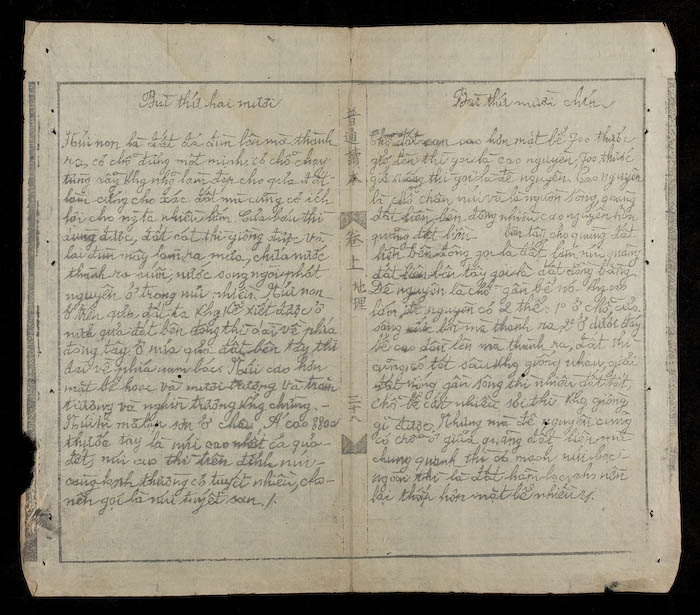 Bài thứ mười chín
chỗ đất cao hơn mặt bể 700 thước
giở lên thì gọi là cao nguyên 700 thước
giở xuống thì gọi là đê nguyên. Cao nguyên
là chỗ chân núi và là nguồn sông, quang
đất liền bên đông nhiều cao nguyên hơn
quảng đất liền bên tây, cho quảng đất
liền bên đông gọi là đất lắm núi, quảng
đất liền bên tây gọi là đất đồng bằng.
Đê nguyên là chỗ gần bể nó không cao
lắm, đê nguyên có 2 thể: 1º ở chỗ cửa
sông bồi mà thành ra, 2º ở dưới đáy
bể cao dần lên mà thành ra, đất thì
cũng có tốt sấu khg giống nhau, giải
đất vùng gần sông thì nhiều đất tốt,
chỗ bể cát nhiều sỏi thì khg giồng
gì được. Nhưng mà đê nguyên cũng
có chỗ ở giữa quảng đất liền mà
chung quanh thì có mạch núi bọc
ngoài thì là đất hãm lạc, cho nên
lại thấp hơn mặt bể nhiều ./.
普通讀本
卷上 地理
二十八
Bài thứ hai mươi
Núi non là đất đá dùn lên mà thành
ra, có chỗ đứng một mình, có chỗ chạy
từng rẫy, khg những làm đẹp cho quả đất
làm cứng cho xác đất mà cũng có ích
lợi cho người ta nhiều lắm. Của báu thì
dùng được, đất cát thì giồng được và
lại đùn mây làm ra mưa, chứa nước
thành ra suối, nước sông ngòi phát
nguyên ở trong núi nhiều. Núi non
ở trên quả đất ta khg kể xiết được ở
nửa quả đất bên đông thì dài về phía
đông tây, ở nửa quả đất bên tây thì
dài về phía nam bắc. Núi cao hơn
mặt bể hoặc và mươi trượng và trăm
trượng và nghìn trượng khg chừng. -
Núi hi mã lạp sơn ở châu Á cao 8800
thước tây là núi cao nhất cả quả
đất, núi cao thì trên đỉnh núi
cung lạnh thường có tuyết nhiều, cho
nên gọi là núi tuyết sơn ./.